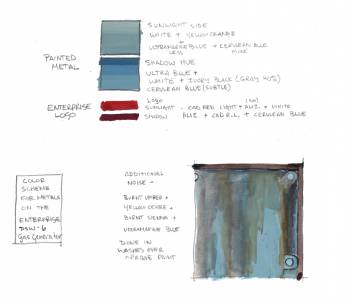 SUNLIGHT SIDE
WHITE + YELLOW ORANGE
+
ULTRAMARINE BLUE + CERULEAN BLUE
LESS MORE
PAINTED
METAL
SHADOW HUE
ULTRA BLUE +
WHITE + IVORY BLACK (GRAY 40%)
CERULEAN BLUE (SUBTLE)
ENTERPRISE
LOGO
LOGO
SUNLIGHT - CAD RED LIGHT + ALIZ. + WHITE
SHADOW ALIZ. + CAD R.L. + CERULEAN BLUE
COLOR
SCHEME
FOR METALS
ON THE
ENTERPRISE
DSW-6
Gas Generator
ADDITIONAL
NOISE -
BURNT UMBER +
YELLOW OCHRE +
BURNT SIENNA +
ULTRAMARINE BLUE
DONE IN
WASHES OVER
OPAQUE PAINT